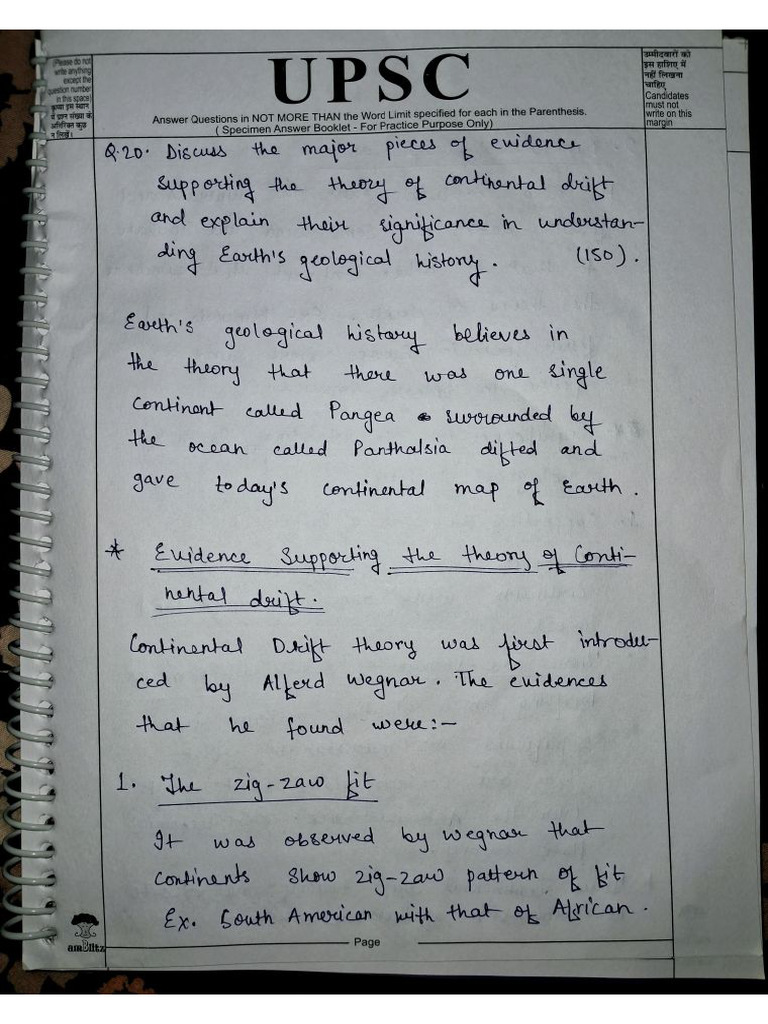 (Please do not
write anything
except the
question number
in this space)
कृपया इस स्थान
में प्रश्न संख्या के
अतिरिक्त कुछ
न लिखें।
UPSC
Answer Questions in NOT MORE THAN the Word Limit specified for each in the Parenthesis.
( Specimen Answer Booklet - For Practice Purpose Only)
उम्मीदवारों को
इस हाशिए में
नहीं लिखना
चाहिए
Candidates
must not
write on this
margin
Q.20. Discuss the major pieces of evidence
supporting the theory of continental drift
and explain their significance in understan-
ding Earth's geological history. (150).
Earth's geological history believes in
the theory that there was one single
continent called Pangea surrounded by
the ocean called Panthalsia difted and
gave today's continental map of Earth.
* Evidence Supporting the theory of Conti-
nental drift.
Continental Drift theory was first introdu-
ced by Alferd Wegnar. The evidences
that he found were:-
1. The zig-zaw fit
It was observed by Wegnar that
continents show zig-zaw pattern of fit
Ex. South American with that of African.
amBlitz
Page